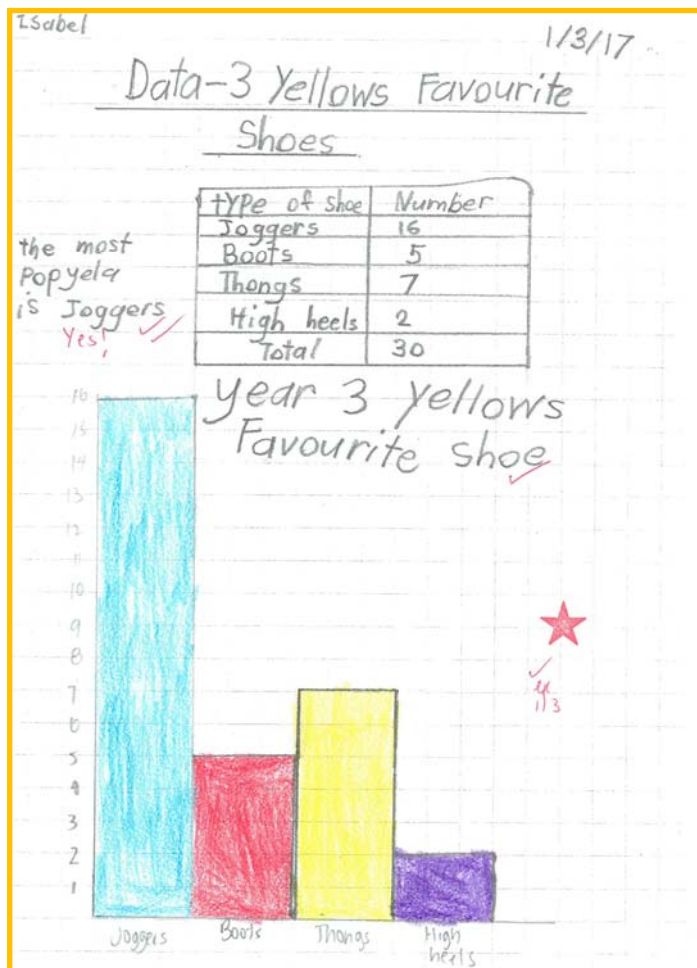 Isabel
1/3/17
Data-3 Yellows Favourite
Shoes
type of shoe Number
Joggers 16
Boots 5
Thongs 7
High heels 2
Total 30
the most
Popyela
is Joggers
Yes!
Year 3 Yellows
Favourite shoe
16
15
14
13
12
11
10
9
8
7
6
5
4
3
2
1
Joggers Boots Thongs High
heels